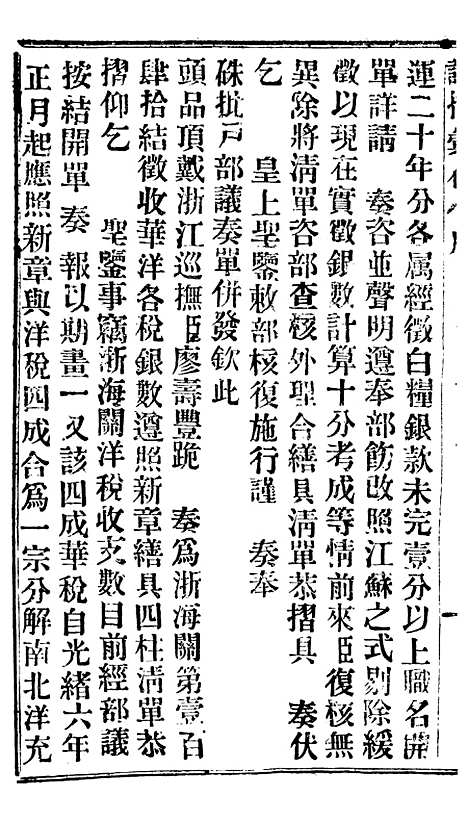 運二十年分各属經徵白糧銀款未完壹分以上職名開
單詳請　奏咨並聲明遵奉部飭改照江蘇之式剔除緩
徵以現在實徵銀數計算十分考成等情前來臣復核無
異除將清單咨部查核外理合繕具清單恭摺具　奏伏
乞　皇上聖鑒敕部核復施行謹　奏奉
硃批戸部議奏單併發欽此
頭品項戴浙江巡撫臣廖壽豐跪　奏爲浙海關第壹百
肆拾結徵收華洋各税銀數遵照新章繕具四柱清單恭
摺仰乞　聖鑒事竊浙海關洋税收支數目前經部議
按結開單　奏　報以期畫一又該四成華税自光緒六年
正月起應照新章與洋税四成合爲一宗分解南北洋充